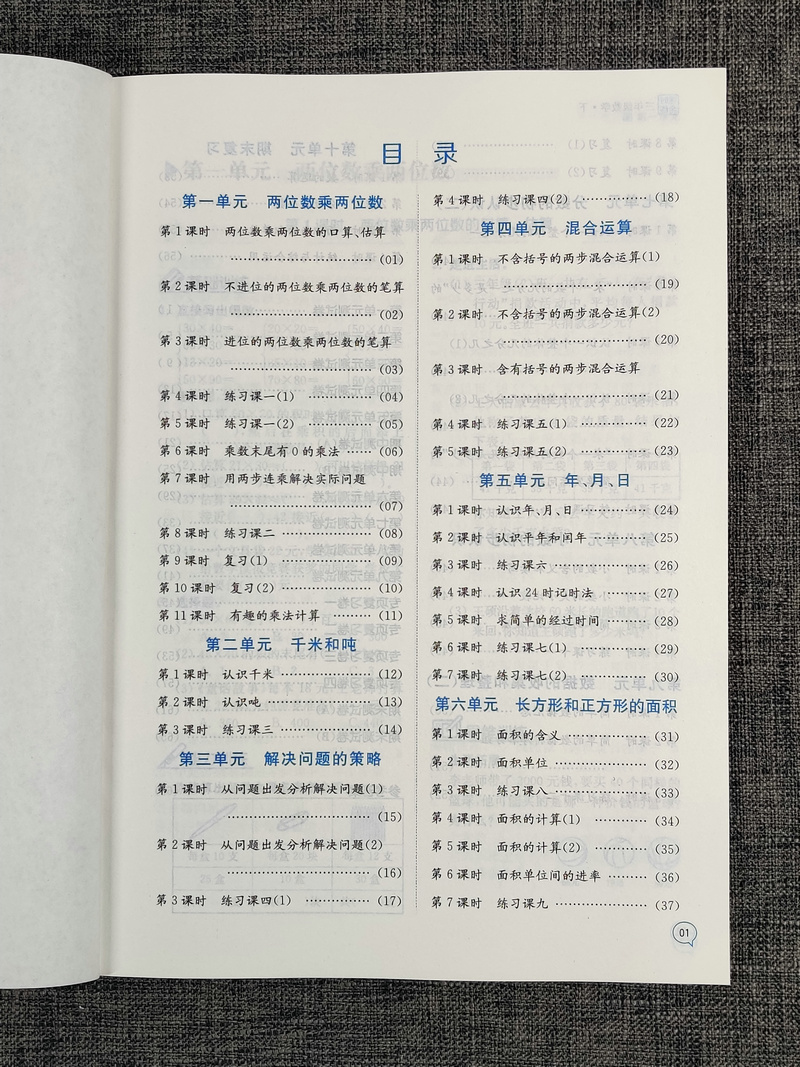 目 录
第一单元 两位数乘两位数
第1课时 两位数乘两位数的口算、估算
……………………(01)
第2课时 不进位的两位数乘两位数的笔算
……………………(02)
第3课时 进位的两位数乘两位数的笔算
……………………(03)
第4课时 练习课一(1) …………(04)
第5课时 练习课一(2) …………(05)
第6课时 乘数末尾有0的乘法 ……(06)
第7课时 用两步连乘解决实际问题
……………………(07)
第8课时 练习课二 ………………(08)
第9课时 复习(1) ………………(09)
第10课时 复习(2) ………………(10)
第11课时 有趣的乘法计算 ………(11)
第二单元 千米和吨
第1课时 认识千米 ………………(12)
第2课时 认识吨 …………………(13)
第3课时 练习课三 ………………(14)
第三单元 解决问题的策略
第1课时 从问题出发分析解决问题(1)
……………………(15)
第2课时 从问题出发分析解决问题(2)
……………………(16)
第3课时 练习课四(1) …………(17)
第4课时 练习课四(2) …………(18)
第四单元 混合运算
第1课时 不含括号的两步混合运算(1)
……………………(19)
第2课时 不含括号的两步混合运算(2)
……………………(20)
第3课时 含有括号的两步混合运算
……………………(21)
第4课时 练习课五(1) …………(22)
第5课时 练习课五(2) …………(23)
第五单元 年、月、日
第1课时 认识年、月、日 …………(24)
第2课时 认识平年和闰年 ………(25)
第3课时 练习课六 ………………(26)
第4课时 认识24时记时法 ………(27)
第5课时 求简单的经过时间 ……(28)
第6课时 练习课七(1) …………(29)
第7课时 练习课七(2) …………(30)
第六单元 长方形和正方形的面积
第1课时 面积的含义 ……………(31)
第2课时 面积单位 ………………(32)
第3课时 练习课八 ………………(33)
第4课时 面积的计算(1) ………(34)
第5课时 面积的计算(2) ………(35)
第6课时 面积单位间的进率 ……(36)
第7课时 练习课九 ………………(37)
01